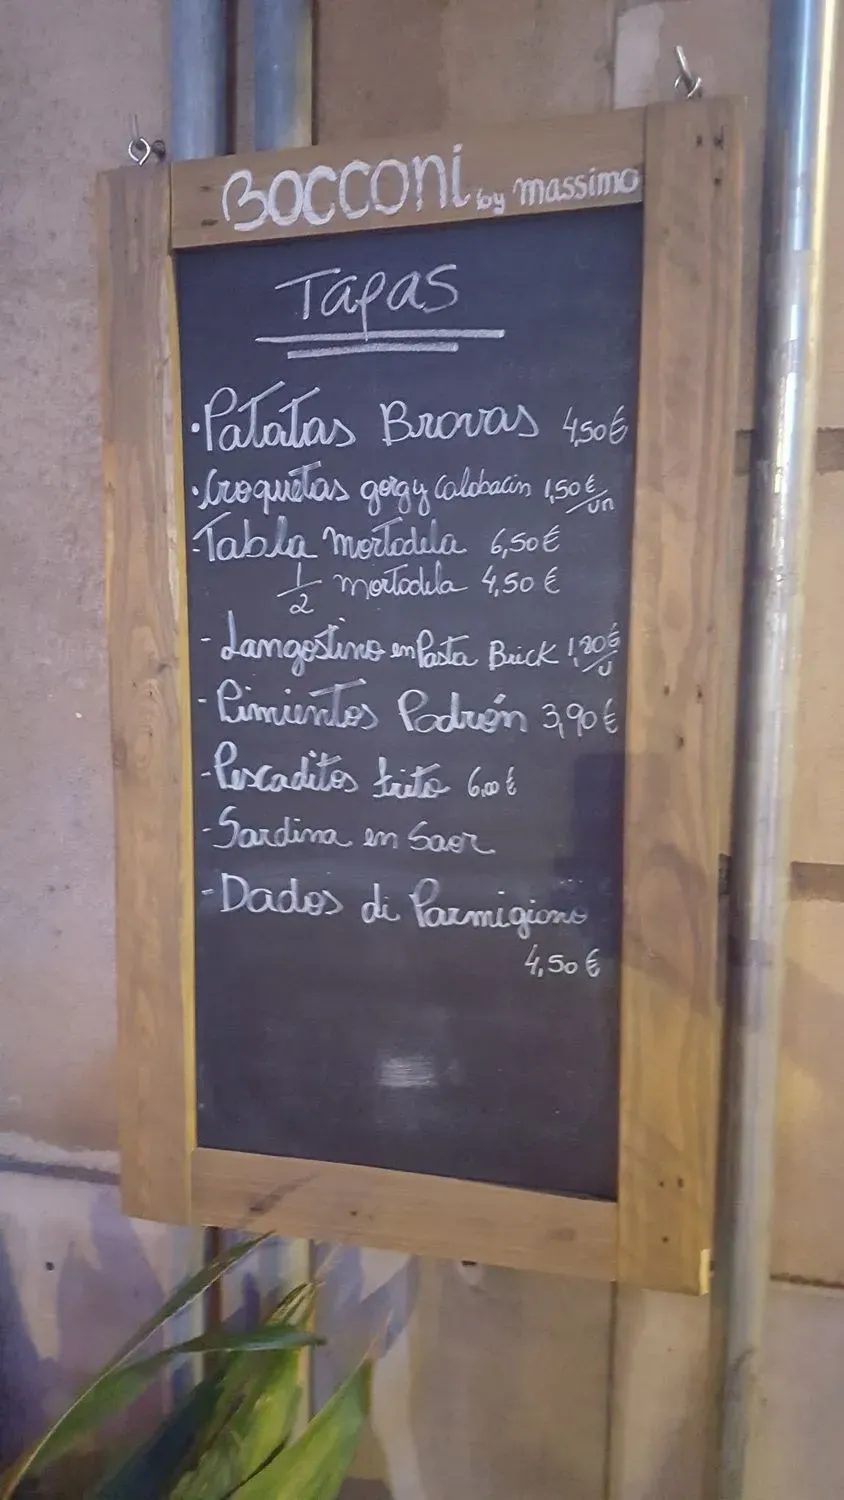 BOCCONi by massimo
TAPAS
·Patatas Brovas 4,50€
·Croquetas gorg y Calabacin 1,50€/un
-Tabla mortadela 6,50€
1/2 mortadela 4,50€
-Langostino en Pasta Brick 1,20€/u
-Pimientos Padrón 3,90€
-Pescaditos frito 6,00€
-Sardina en Saor
-Dados di Parmigiano
4,50€